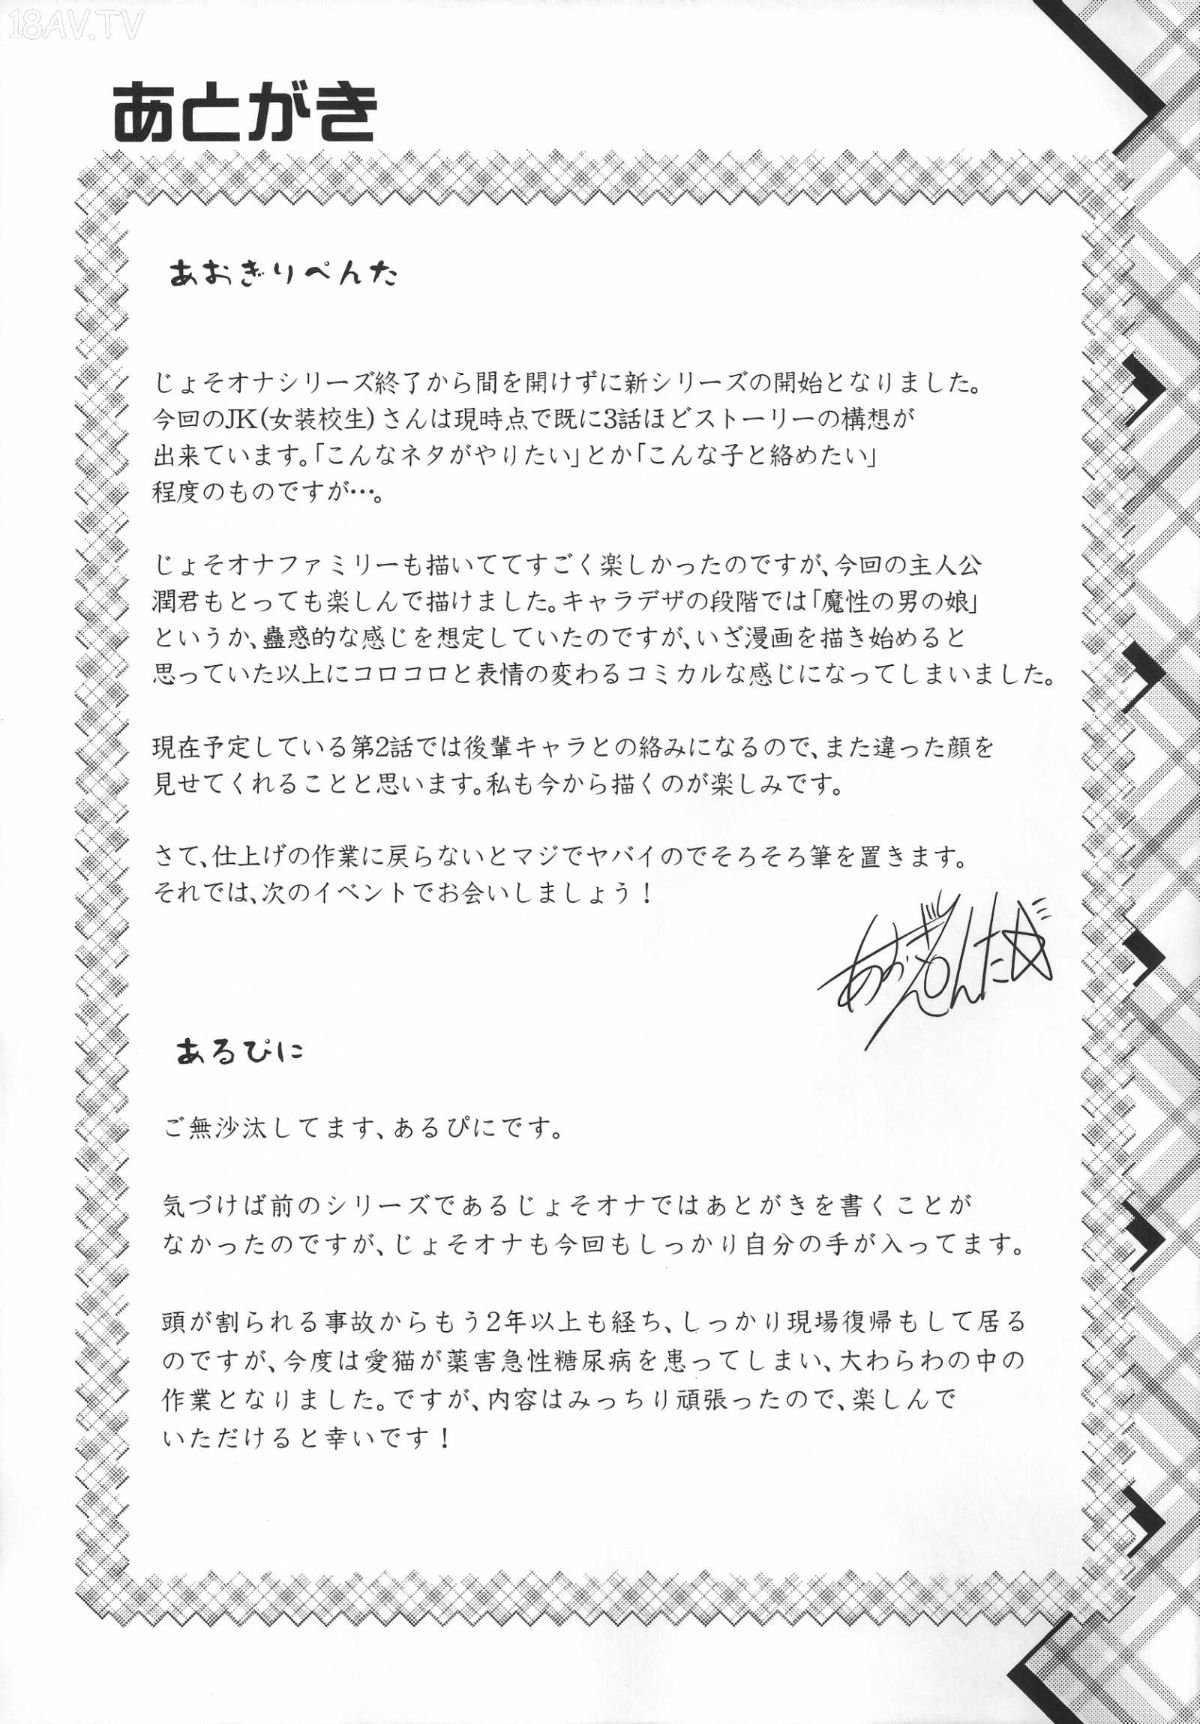 18AV.TV
あとがき
あおぎりぺんた
じょそオナシリーズ終了から間を開けずに新シリーズの開始となりました。
今回のJK(女装校生)さんは現時点で既に3話ほどストーリーの構想が
出来ています。「こんなネタがやりたい」とか「こんな子と絡めたい」
程度のものですが…。
じょそオナファミリーも描いててすごく楽しかったのですが、今回の主人公
潤君もとっても楽しんで描けました。キャラデザの段階では「魔性の男の娘」
というか、蠱惑的な感じを想定していたのですが、いざ漫画を描き始めると
思っていた以上にコロコロと表情の変わるコミカルな感じになってしまいました。
現在予定している第2話では後輩キャラとの絡みになるので、また違った顔を
見せてくれることと思います。私も今から描くのが楽しみです。
さて、仕上げの作業に戻らないとマジでヤバイのでそろそろ筆を置きます。
それでは、次のイベントでお会いしましょう！
あおぎりぺんた☆
あるぴに
ご無沙汰してます、あるぴにです。
気づけば前のシリーズであるじょそオナではあとがきを書くことが
なかったのですが、じょそオナも今回もしっかり自分の手が入ってます。
頭が割られる事故からもう2年以上も経ち、しっかり現場復帰もして居る
のですが、今度は愛猫が薬害急性糖尿病を患ってしまい、大わらわの中の
作業となりました。ですが、内容はみっちり頑張ったので、楽しんで
いただけると幸いです！